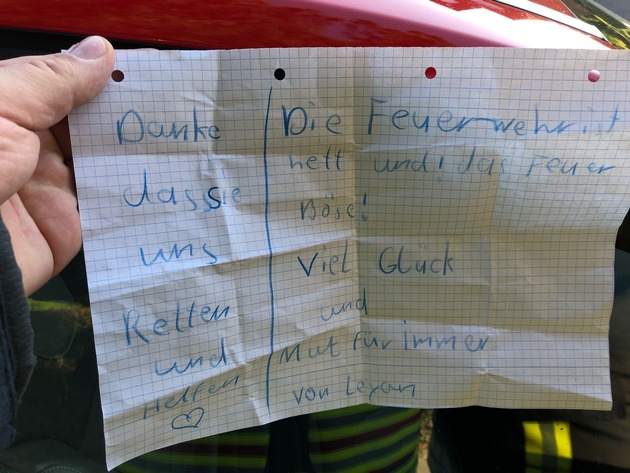 Danke
dassie
uns
Retten
und
Helfen
Die Feuerwehr ist
nett und! das Feuer
Böse!
Viel Glück
und
Mut für immer
von Leyan